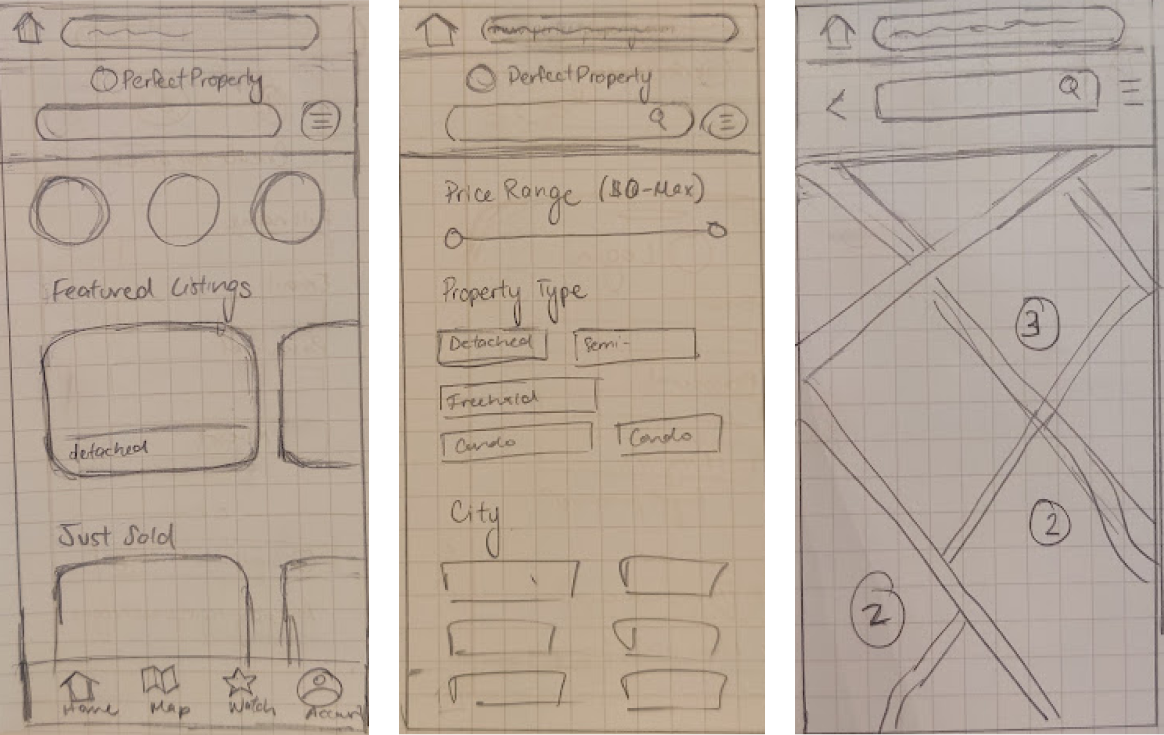 PerfectProperty
Featured Listings
detached
Just Sold
Home
Map
Watch
Account
PerfectProperty
Price Range ($0-Max)
Property Type
Detached
Semi-
Freehold
Condo
Condo
City
3
2
2